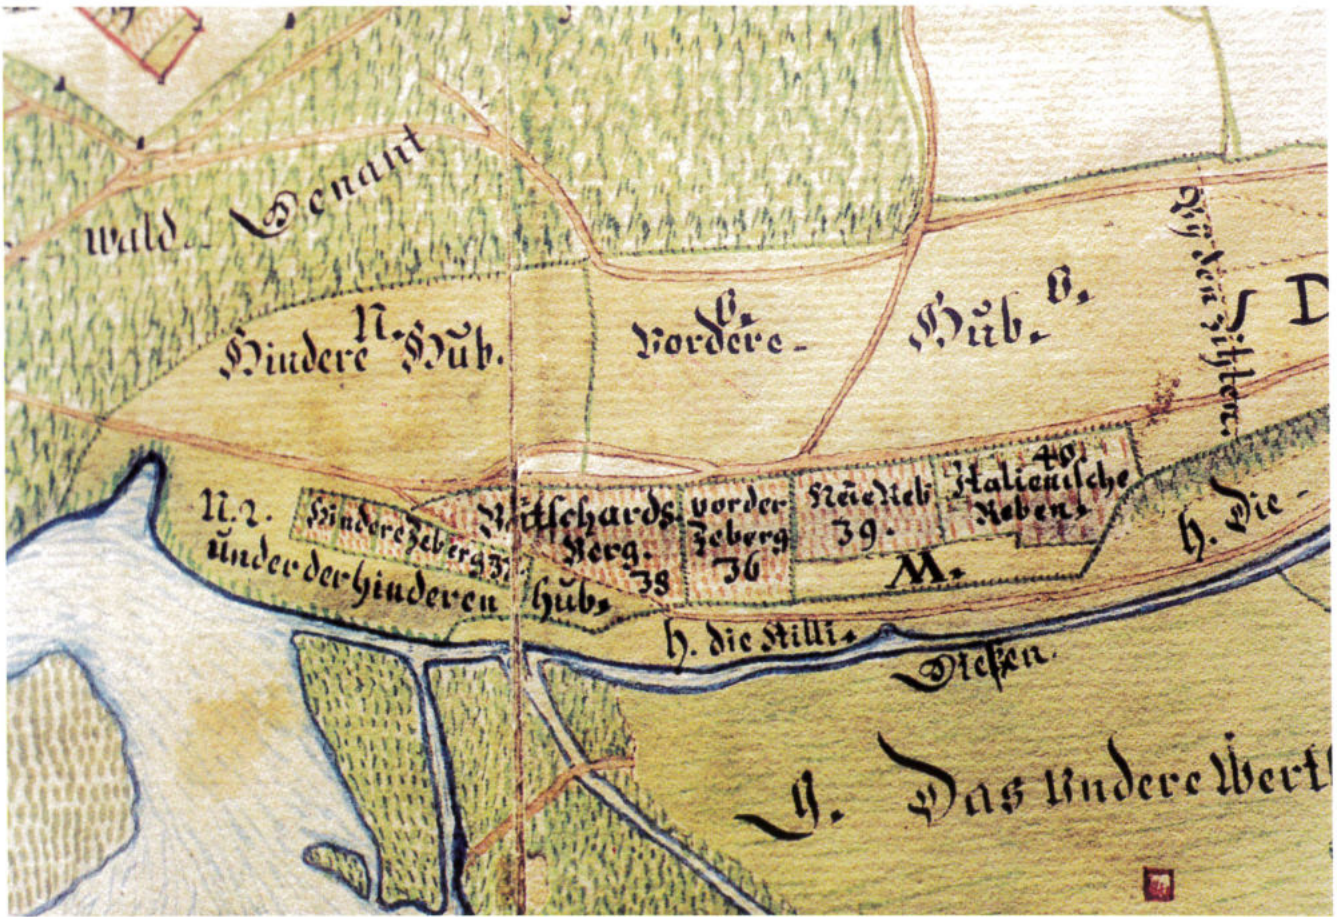 wald
N.
Hindere Hub.
O.
Vordere-
Hub. O.
By den
D
N. 2.
Under der hinderen hub.
Hindere Zeberg 37.
Berg.
38
vorder
Zeberg
36
Neüe Reb
39.
40.
Italienische
Reben.
M.
H. Die-
H. die Stilli.
G. Das Undere Wert